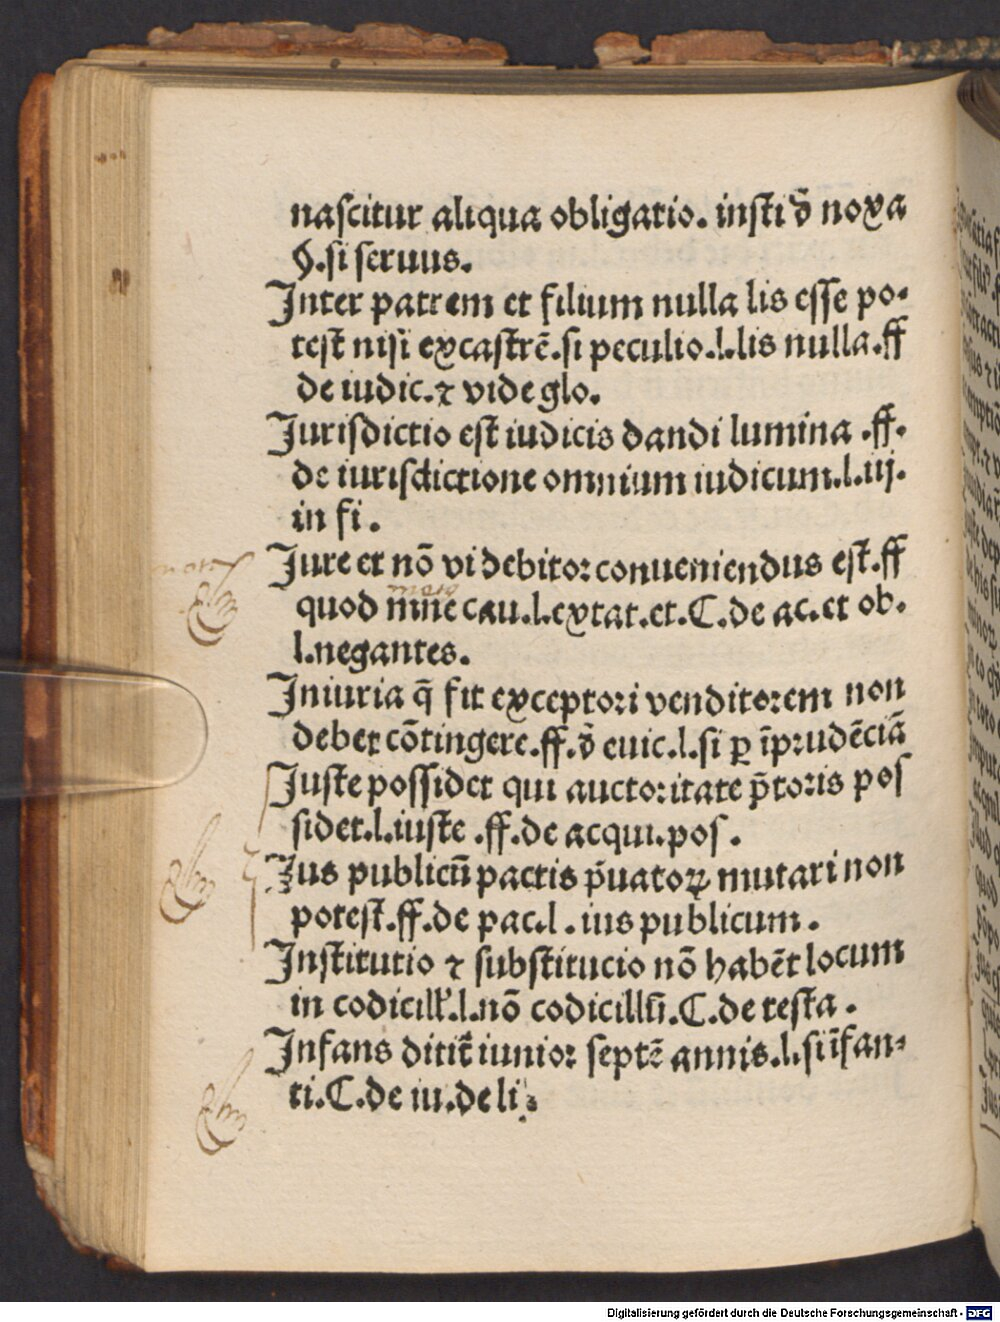 nascitur aliqua obligatio. insti đ noxa
§. si seruus.
Inter patrem et filium nulla lis esse po-
test nisi excastrē. si peculio. l. lis nulla. ff
de iudic. ⁊ vide glo.
Iurisdictio est iudicis dandi lumina . ff.
de iurisdictione omnium iudicum. l. iij.
in fi.
Iure et nō vi debitor conueniendus est. ff
quod mne cau. l. extat. et. C. de ac. et ob.
l. negantes.
Iniuria q̄ fit exceptori venditorem non
debet cōtingere. ff. đ euic. l. si ꝑ īprudēciā
Iuste possidet qui auctoritate p̄toris pos
sidet. l. iuste . ff. de acqui. pos.
Ius publicū pactis p̄uatoꝝ mutari non
potest. ff. de pac. l. ius publicum.
Institutio ⁊ substitucio nō habēt locum
in codicill'. l. nō codicillū. C. de testa.
Infans dicit̄ iunior septē annis. l. si īfan-
ti. C. de iu. de li.
Digitalisierung gefördert durch die Deutsche Forschungsgemeinschaft - DFG